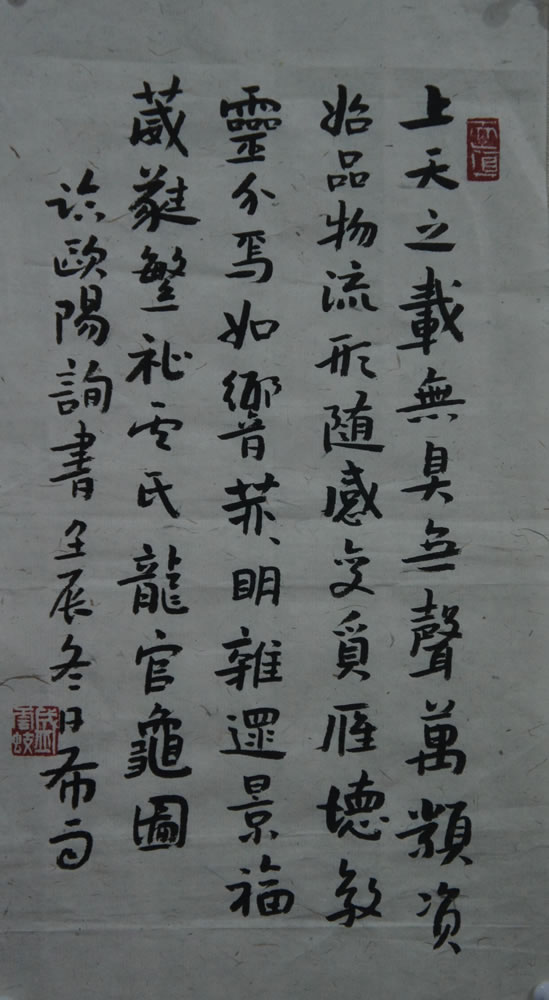 上天之載無臭無聲萬類資
始品物流形随感变質應德效
靈介焉如響赫、明雜遝景福
葳蕤繁祉雲氏龍官龜圖
临歐陽詢書壬辰冬日